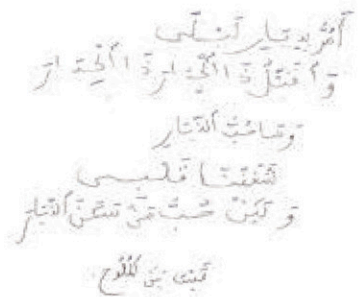 أَمُرُّ بِدِيَارِ لَيْلَى
وَأُقَبِّلُ ذَا الْجِدَارَ ذَا الْجِدَارَ
وَمَا حُبُّ الدِّيَارِ
شَغَفْنَا قَلْبِي
وَلَكِنْ حُبُّ مَنْ سَكَنَ الدِّيَارَ